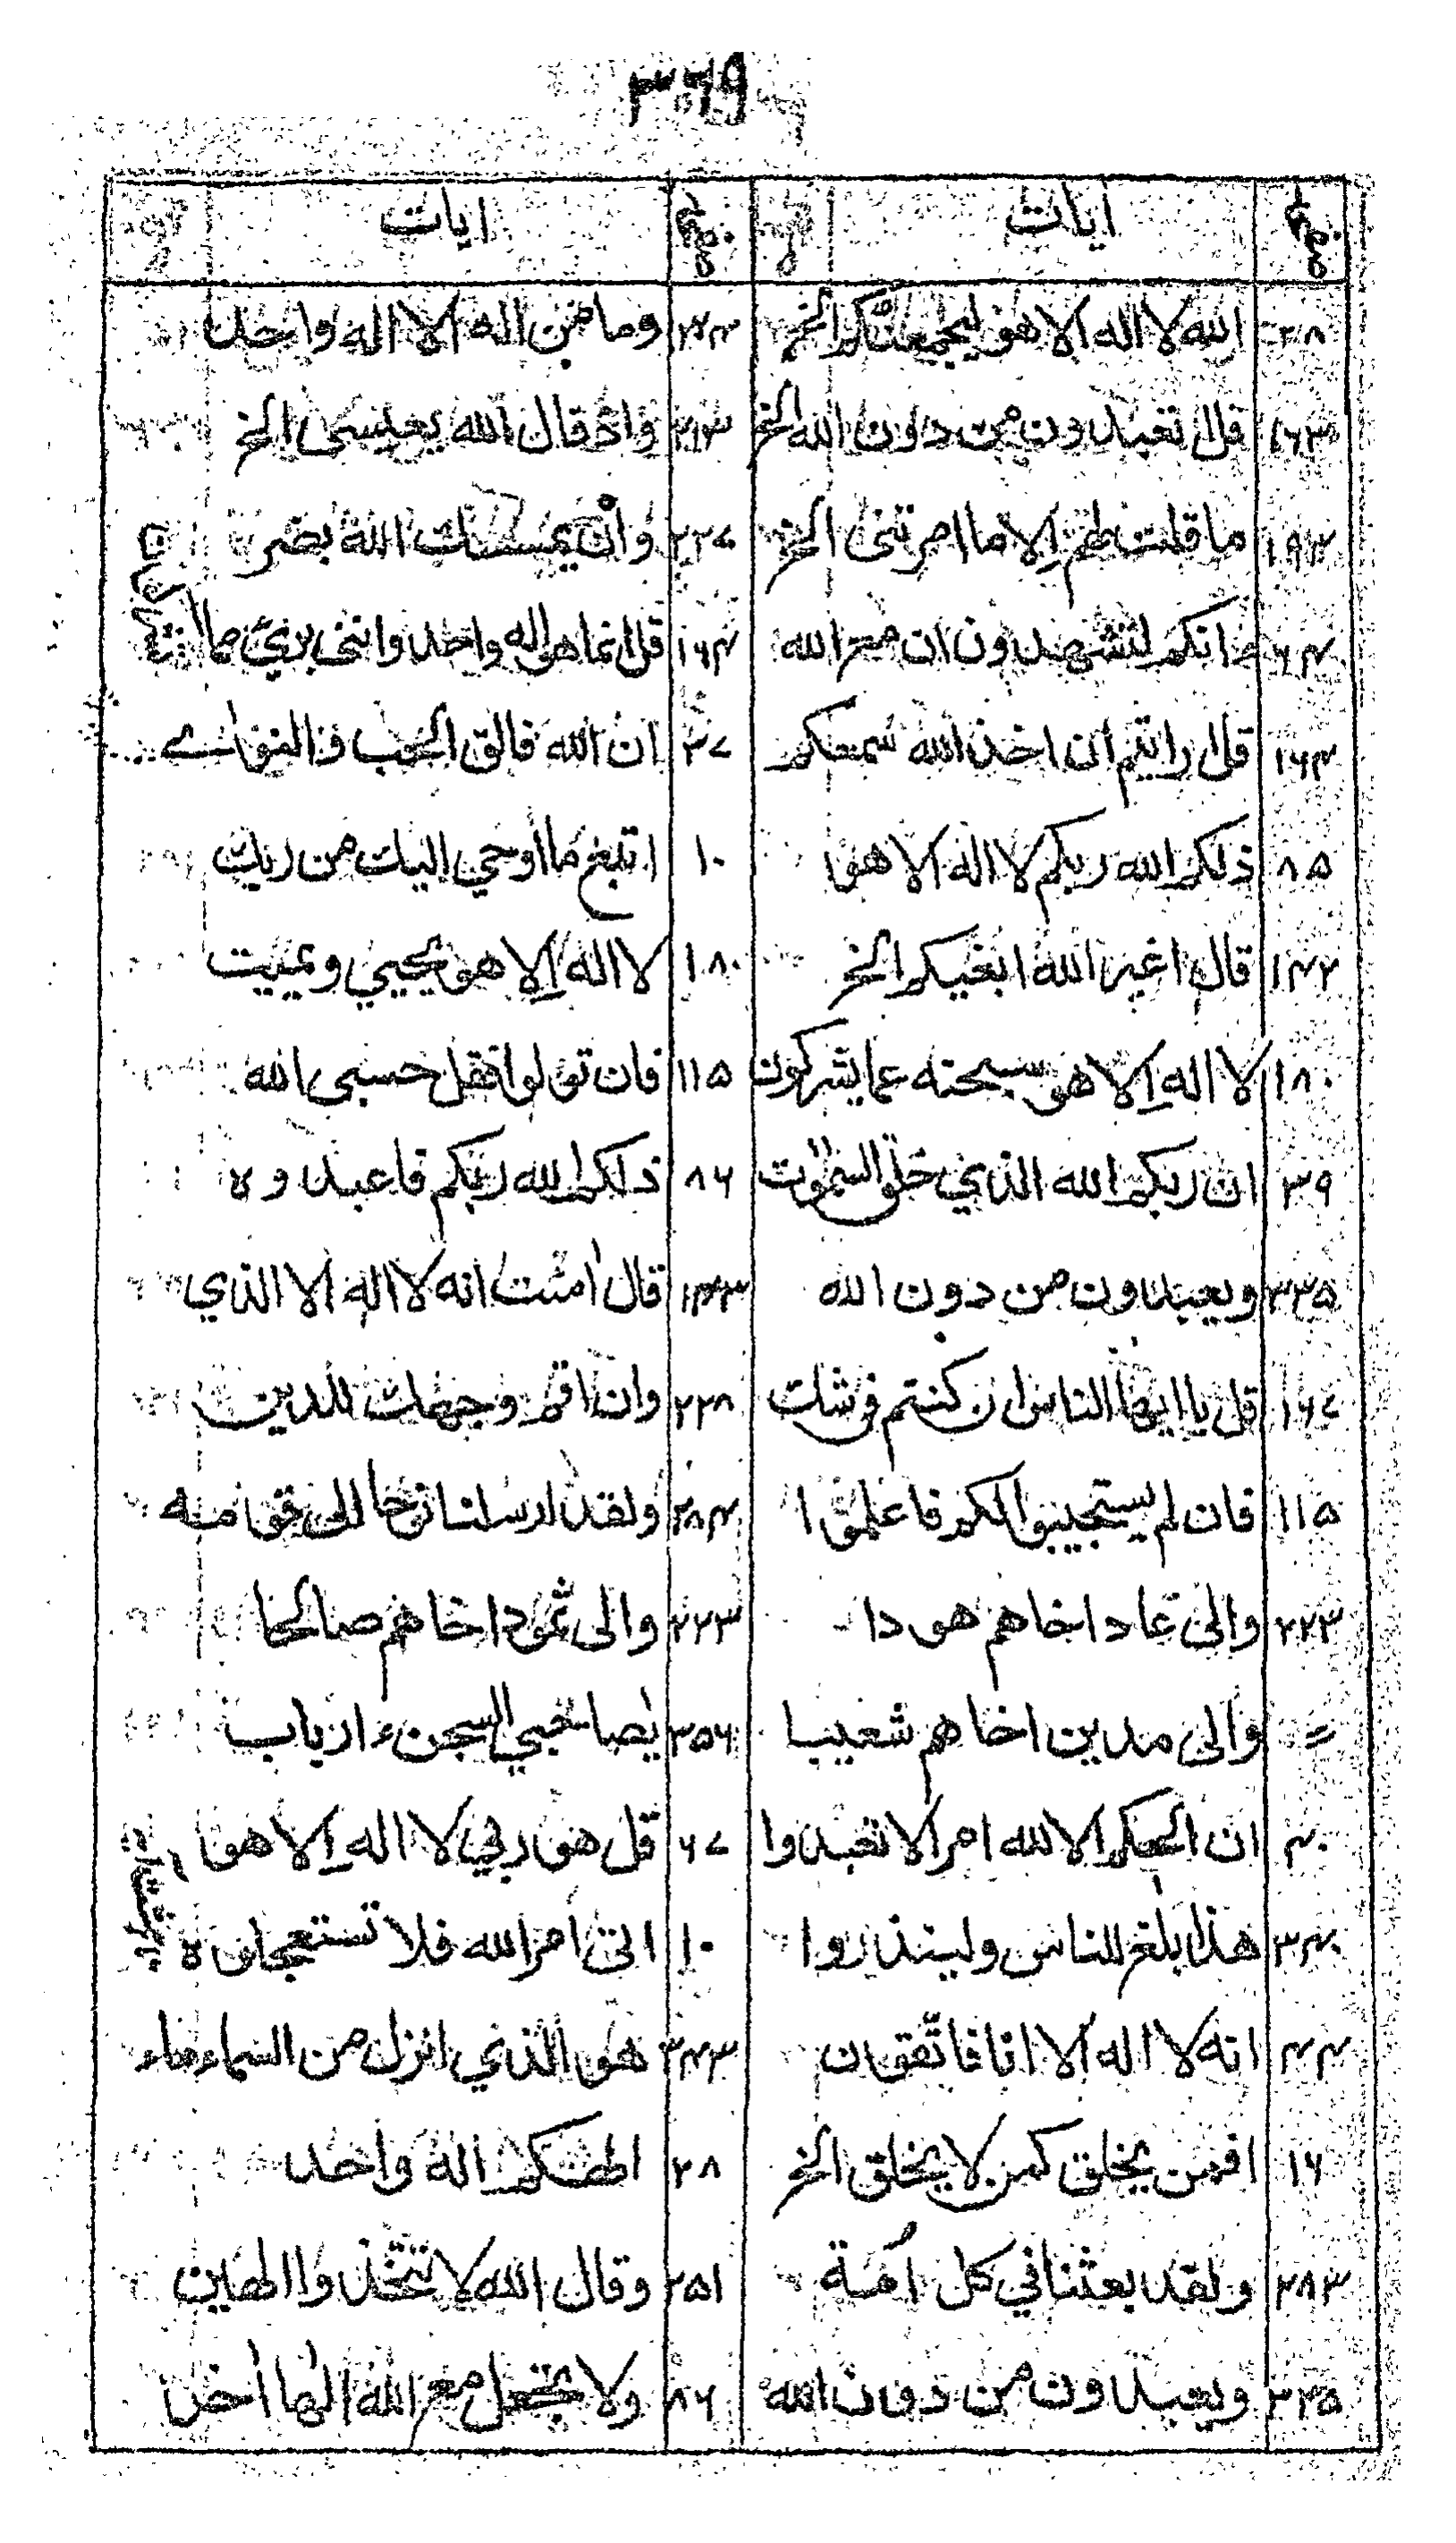 ٣٦٩
صفحہ ایات صفحہ ایات
٢٨ الله لا اله الا هو ليجمعنكم الخ ٢٤٣ وما من اله الا اله واحد
١٦٣ قل اتعبدون من دون الله الخ ٢١٣ واذ قال الله يعيسى الخ
١٩٣ ما قلت لهم الا ما امرتنى الخ ٢٣٧ وان يمسسك الله بضر
٦٤ ءانكم لتشهدون ان مع الله ١٦٤ قل انما هو اله واحد وانني بريء مما تشركون
١٦٤ قل ارايتم ان اخذ الله سمعكم ٣٧ ان الله فالق الحب والنوٰى
٨٥ ذلكم الله ربكم لا اله الا هو ١٠ اتبع ما اوحي اليك من ربك
١٤٢ قال اغير الله ابغيكم الخ ١٨٠ لا اله الا هو يحيي ويميت
١٨٠ لا اله الا هو سبحنه عما يشركون ١١٥ فان تولوا فقل حسبى الله
٣٩ ان ربكم الله الذي خلق السموٰت ٨٦ ذلكم الله ربكم فاعبدوه
٣٣٥ ويعبدون من دون الله ١٤٣ قال اٰمنت انه لا اله الا الذي
١٦٧ قل يا ايها الناس ان كنتم فى شك ٢٢٨ وان اقم وجهك للدين
١١٥ فان لم يستجيبوا لكم فاعلموا ٢٨٤ ولقد ارسلنا نوحا الى قومه
٢٢٣ والى عاد اخاهم هودا ٢٢٣ والى ثمود اخاهم صالحا
= والى مدين اخاهم شعيبا ٣٥٦ يٰصاحبي السجن ءارباب
٤٠ ان الحكم الا لله امر الا تعبدوا ٦٧ قل هو ربي لا اله الا هو
٣٤٠ هذا بلٰغ للناس ولينذروا ١٠ اتى امر الله فلا تستعجلوه
٤٤ انه لا اله الا انا فاتقون ٣٤٣ هو الذي انزل من السماء ماء
١٦ افمن يخلق كمن لا يخلق الخ ٢٨ الهكم اله واحد
٢٨٣ ولقد بعثنا في كل امة ٢٥١ وقال الله لا تتخذوا الهين
٣٣٥ ويعبدون من دون الله ٨٦ ولا تجعل مع الله الٰها اٰخر